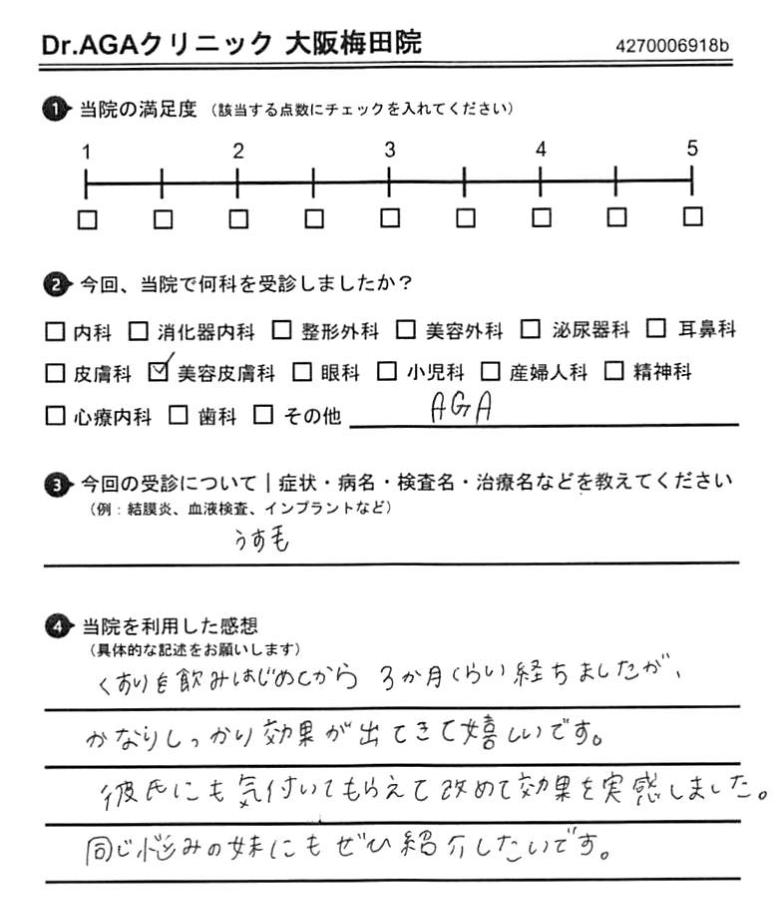 Dr.AGAクリニック 大阪梅田院 4270006918b
1 当院の満足度 (該当する点数にチェックを入れてください)
1 2 3 4 5
2 今回、当院で何科を受診しましたか?
内科 消化器内科 整形外科 美容外科 泌尿器科 耳鼻科
皮膚科 美容皮膚科 眼科 小児科 産婦人科 精神科
心療内科 歯科 その他 AGA
3 今回の受診について|症状・病名・検査名・治療名などを教えてください
(例:結膜炎、血液検査、インプラントなど)
うす毛
4 当院を利用した感想
(具体的な記述をお願いします)
くすりを飲みはじめてから 3か月くらい経ちましたが、
かなりしっかり効果が出てきて嬉しいです。
彼氏にも気付いてもらえて改めて効果を実感しました。
同じ悩みの妹にもぜひ紹介したいです。